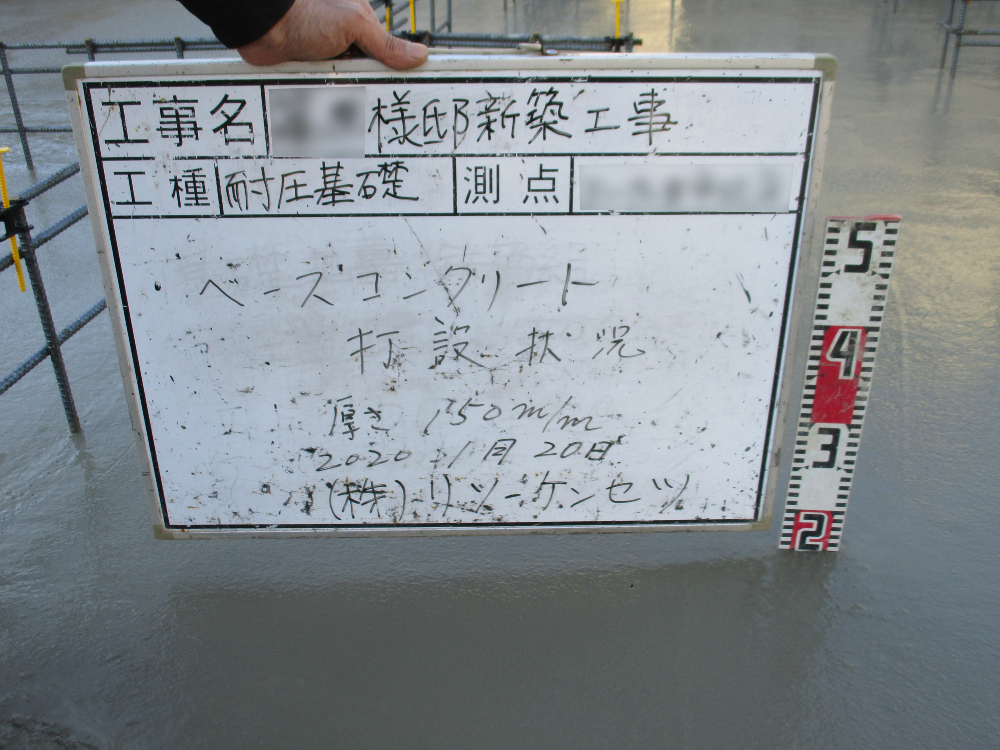 工事名 様邸新築工事
工種 耐圧基礎 測点
ベースコンクリート
打設 状況
厚さ 150m/m
2020 1月 20日
(株)リツーケンセツ
5
4
3
2